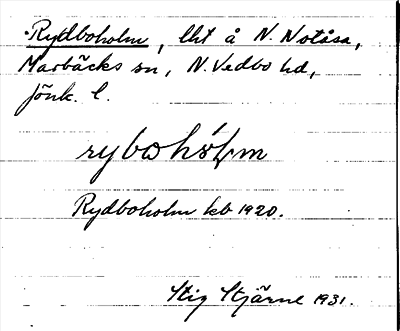 Rydboholm, lht å N. Notåsa,
Marbäcks sn, N. Vedbo hd,
Jönk. l.
rybohólm
Rydboholm kb 1920.
Stig Stjärne 1931.